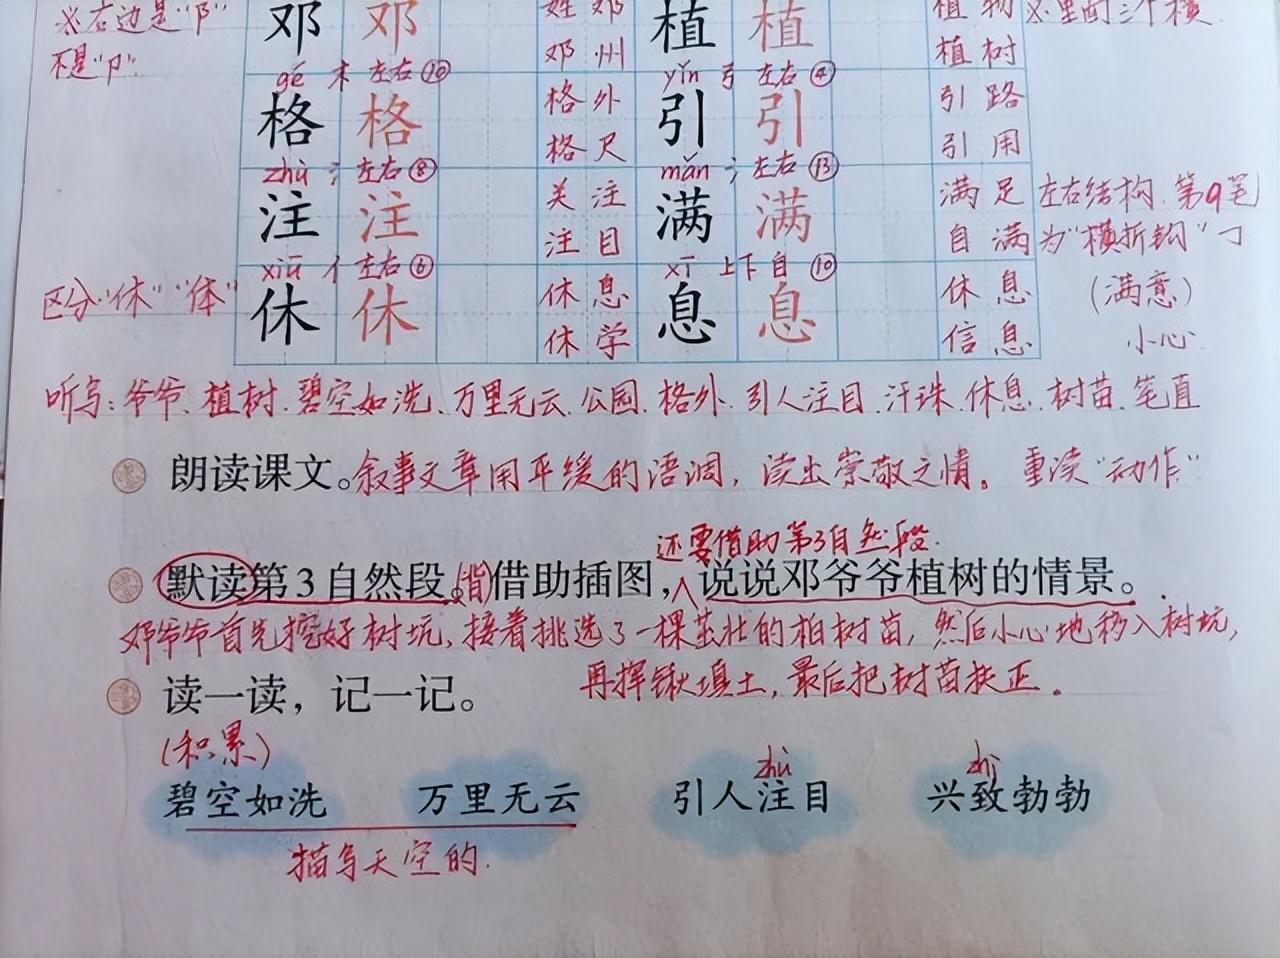 ※右边是“阝”
不是“卩”.
邓 邓 姓邓 植 植 植物 ※里面三个横.
邓州 植树
gé 木 左右⑩ yǐn 弓 左右④
格 格 格外 引 引 引路
格尺 引用
zhù 氵左右⑧ mǎn 氵左右⑬
注 注 关注 满 满 满足 左右结构.第9笔
注目 自满 为“横折钩”㇆
xiū 亻左右⑥ xī 上下 自⑩
区分“休”“体” 休 休 休息 息 息 休息 (满意)
休学 信息 小心.
听写:爷爷、植树.碧空如洗、万里无云.公园.格外.引人注目.汗珠.休息.树苗.笔直
朗读课文。叙事文章用平缓的语调,读出崇敬之情。重读“动作”
还要借助第3自然段.
默读第3自然段。(背)借助插图,∧说说邓爷爷植树的情景。
邓爷爷首先挖好树坑,接着挑选了一棵茁壮的柏树苗,然后小心地移入树坑,
再挥锹填土,最后把树苗扶正.
读一读,记一记。
(积累)
zhù zhì
碧空如洗 万里无云 引人注目 兴致勃勃
描写天空的.